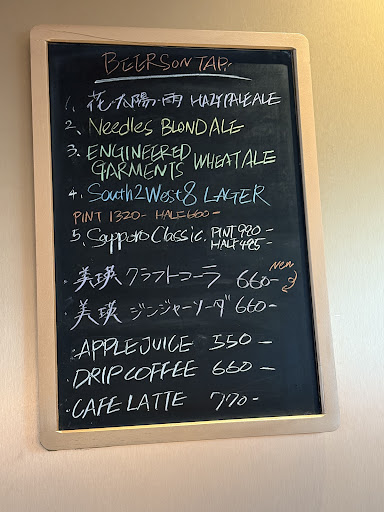 BEERS ON TAP!
1. 花・太陽・雨 HAZY PALE ALE
2. Needles BLOND ALE
3. ENGINEERED GARMENTS WHEAT ALE
4. South2 West8 LAGER
PINT 1320- HALF 660-
5. Sapporo Classic. PINT 920- HALF 485-
New
・美瑛 クラフトコーラ 660-
・美瑛 ジンジャーソーダ 660-
・APPLE JUICE 550-
・DRIP COFFEE 660-
・CAFE LATTE 770-